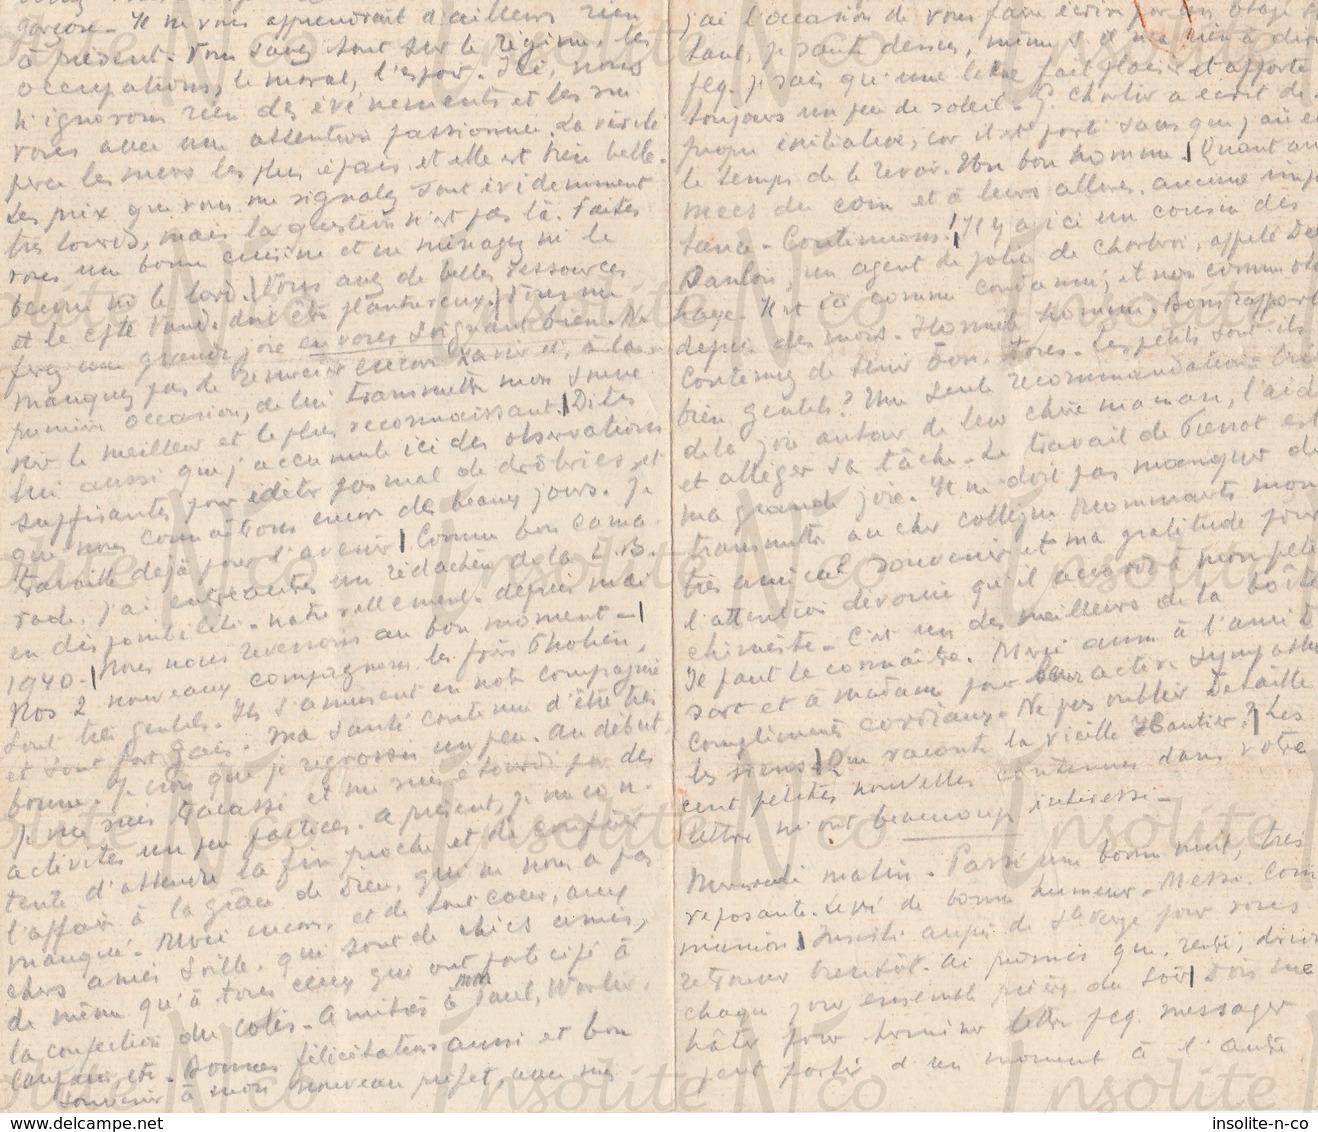 garçon - Il ne vous apprendrait d'ailleurs rien
à présent. Vous savez tout sur le régime, les
occupations, le moral, l'espoir. Ici, nous
n'ignorons rien des événements et les sui
vons avec une attention passionnée. La vérité
perce les murs les plus épais et elle est bien belle.
Les prix que vous me signalez sont évidemment
très lourds, mais la question n'est pas là. Faites
vous une bonne cuisine et ne ménagez ni le
beurre ni le lard. Vous avez de belles ressources
et le cpte Vand. doit être plantureux. Vous me
ferez une grande joie en vous soignant bien. Ne
manquez pas de remercier encore Xavier et, à la
première occasion, de lui transmettre mon souve
nir le meilleur et le plus reconnaissant. Dites
lui aussi que j'accumule ici des observations
suffisantes pour éditer pas mal de drôleries, et
que nous connaîtrons encore des beaux jours. Je
travaille déjà pour l'avenir. Comme bon cama
rade, j'ai un rédacteur de la L. B.
en disponibilité - naturellement - depuis mai
1940 - Nous nous reverrons au bon moment -
Nos 2 nouveaux compagnons, les frères
sont très gentils. Ils s'amusent en notre compagnie
et sont fort gais. Ma santé continue d'être très
bonne. Je crois que je regrossis un peu. Au début,
je me suis tracassé et me suis étourdi par des
activités un peu factices. A présent, je me con
tente d'attendre la fin proche et de confier
l'affaire à la grâce de Dieu, qui ne nous a pas
manqué. Merci encore, et de tout cœur, aux
chers amis Soille, qui sont de chics amis,
de même qu'à tous ceux qui ont participé à
la confection du colis - Amitiés à mm Paul,
etc - Bonnes félicitations aussi et bon
souvenir à mon nouveau préfet, avec me
j'ai l'occasion de vous faire écrire par un otage
je saute dessus, même s'il n'a rien à dire
pcq. je sais qu'une lettre fait plaisir et apporte
toujours un peu de soleil - G. Charlier a écrit de
propre initiative, car il est parti sans que j'aie eu
le temps de le revoir. Un bon homme. Quant au
mecs du coin et à leurs allures, aucune impo
tance - Continuons. Il y a ici un cousin des
un agent de police de Charleroi, appelé De
haye. Il est ici comme condamné, et non comme ota
depuis des mois. Honnête homme. Bons rapports
Continuez de tenir bon, tous - Les petits sont-ils
bien gentils? Une seule recommandation - Cré
de la joie autour de leur chère maman, l'aid
et alléger sa tâche - Le travail de Pierrot est
ma grande joie. Il ne doit pas manquer de
transmettre au cher collègue Mommaerts mon
très amical souvenir et ma gratitude pour
l'attention dévouée qu'il accorde à mon petit
chimiste - C'est un des meilleurs de la boîte
Il faut le connaître. Merci aussi à l'ami
sart et à Madame pour leur active sympathie
compliments cordiaux - Ne pas oublier Detaille
les siens. Que raconte la vieille Hautier? Les
cent petites nouvelles contenues dans votre
lettre m'ont beaucoup intéressé -
Mercredi matin - Passé une bonne nuit, très
reposante. Levé de bonne humeur - Messe. Com
munion. Insisté auprès de Ste Vierge pour vous
retrouver bientôt. Ai promis que, rentré, dirions
chaque jour ensemble prière du soir. Dois me
hâter pour terminer lettre pcq. messager
peut partir d'un moment à l'autre
insolite-n-co.delcampe.net
insolite-n-co